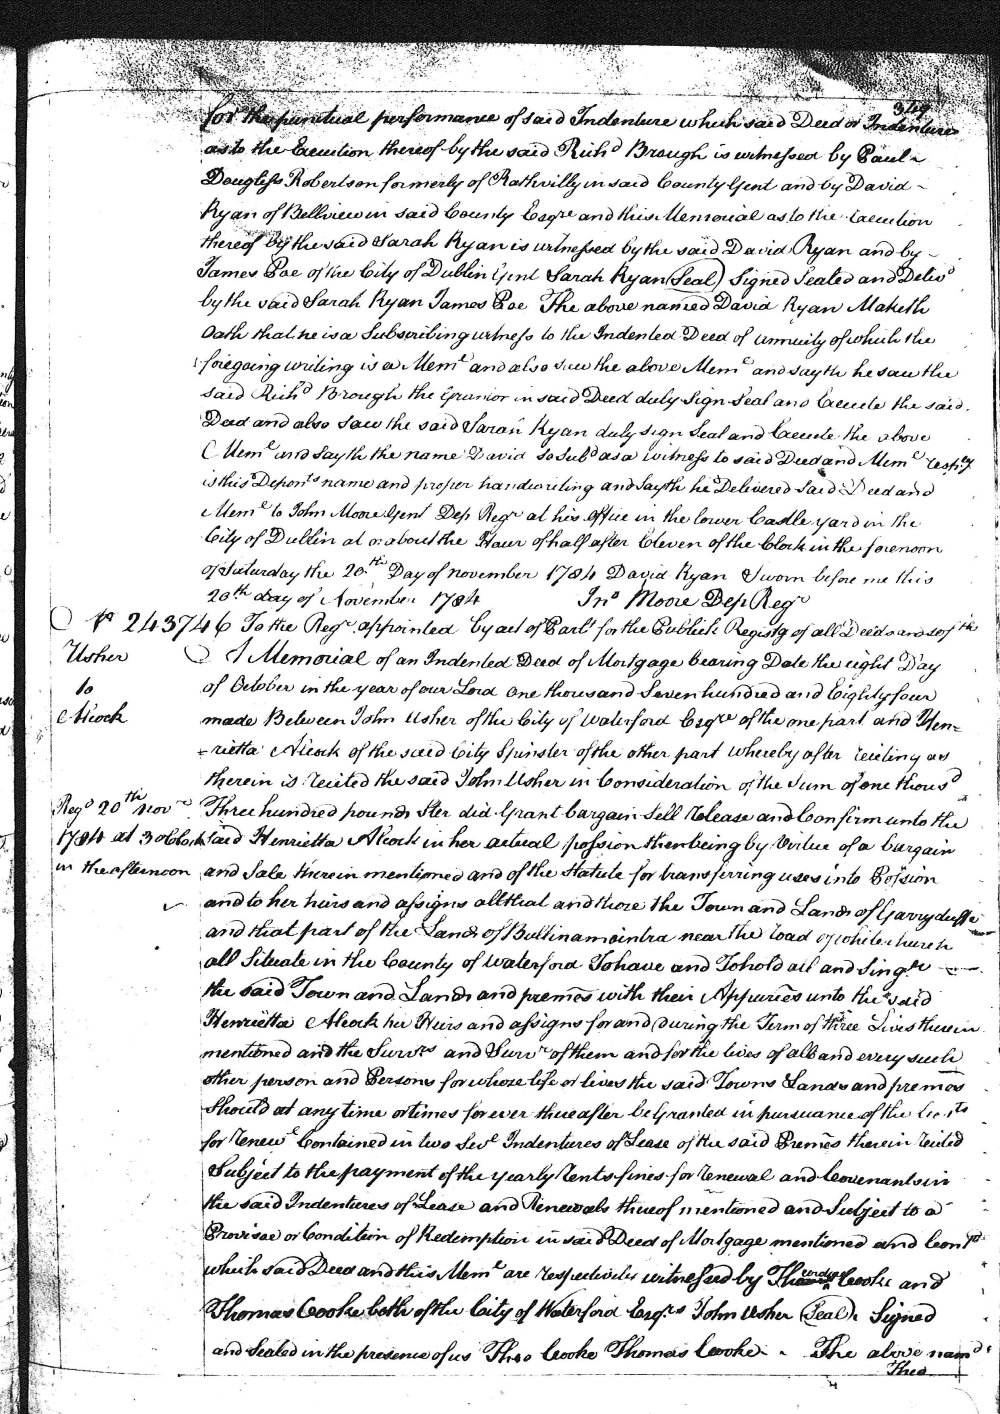 349
for the punctual performance of said Indenture which said Deed or Indenture
as to the Execution thereof by the said Rich^d Brough is witnessed by Paul
Douglass Robertson formerly of Rathvilly in said County Gent and by David
Ryan of Bellview in said County Esq^re and this Memorial as to the Execution
thereof by the said Sarah Ryan is witnessed by the said David Ryan and by
James Poe of the City of Dublin Gent Sarah Ryan (Seal) Signed Sealed and Deliv^d
by the said Sarah Ryan James Poe The above named David Ryan Maketh
Oath that he is a Subscribing witness to the Indented Deed of Annuity of which the
foregoing writing is a Mem^l and also saw the above Mem^l and sayth he saw the
said Rich^d Brough the Grantor in said Deed duly Sign Seal and Execute the said
Deed and also saw the said Sarah Ryan duly sign Seal and Execute the above
Mem^l and sayth the name David so Sub^d as a witness to said Deed and Mem^l resp^y
is this Depon^ts name and proper handwriting and sayth he Delivered said Deed and
Mem^l to John Moore Gent Dep Reg^r at his Office in the lower Castle yard in the
City of Dublin at or about the Hour of half after Eleven of the Clock in the forenoon
of Saturday the 20^th Day of November 1784 David Ryan Sworn before me this
20^th day of November 1784 Jn^o Moore Dep Reg^r
N^o 243746 To the Reg^r appointed by act of Parl^t for the Publick Registg of all Deeds and so forth
Usher
to
Alcock
A Memorial of an Indented Deed of Mortgage bearing Date the eight Day
of October in the year of our Lord One thousand Seven hundred and Eighty four
made Between John Usher of the City of Waterford Esq^re of the one part and Hen-
-rietta Alcock of the said City Spinster of the other part whereby after reciting as
therein is recited the said John Usher in Consideration of the Sum of one thous^d
Reg^d 20^th Nov^r
1784 at 3 oClock
in the afternoon
Three hundred pounds Ster did Grant bargain Sell Release and Confirm unto the
said Henrietta Alcock in her actual possion then being by Virtue of a bargain
and Sale therein mentioned and of the Statute for transferring uses into Possion
and to her heirs and assigns all that and those the Town and Lands of Garryduffe
and that part of the Lands of Ballinamointra near the road of whitechurch
all Situate in the County of Waterford To have and To hold all and Sing^r
the said Town and Lands and premes with their Appurces unto the said
Henrietta Alcock her Heirs and assigns for and During the Term of three Lives therein
mentioned and the Surv^rs and Surv^r of them and for the lives of all and every such
other person and Persons for whose life or lives the said Towns Lands and premes
Should at any time or times for ever thereafter be Granted in pursuance of the
for renew^l Contained in two Sev^l Indentures of Lease of the said Premes therein recited
Subject to the payment of the yearly rents fines for renewal and Covenants in
the said Indentures of Lease and Renewals thereof mentioned and Subject to a
Provisoe or Condition of Redemption in said Deed of Mortgage mentioned and Cont^d
which said Deed and this Mem^l are respectively witnessed by Cooke and
Thomas Cooke both of the City of Waterford Esq^rs John Usher (Seal) Signed
and Sealed in the presence of us Theo Cooke Thomas Cooke The above nam^d
Theo